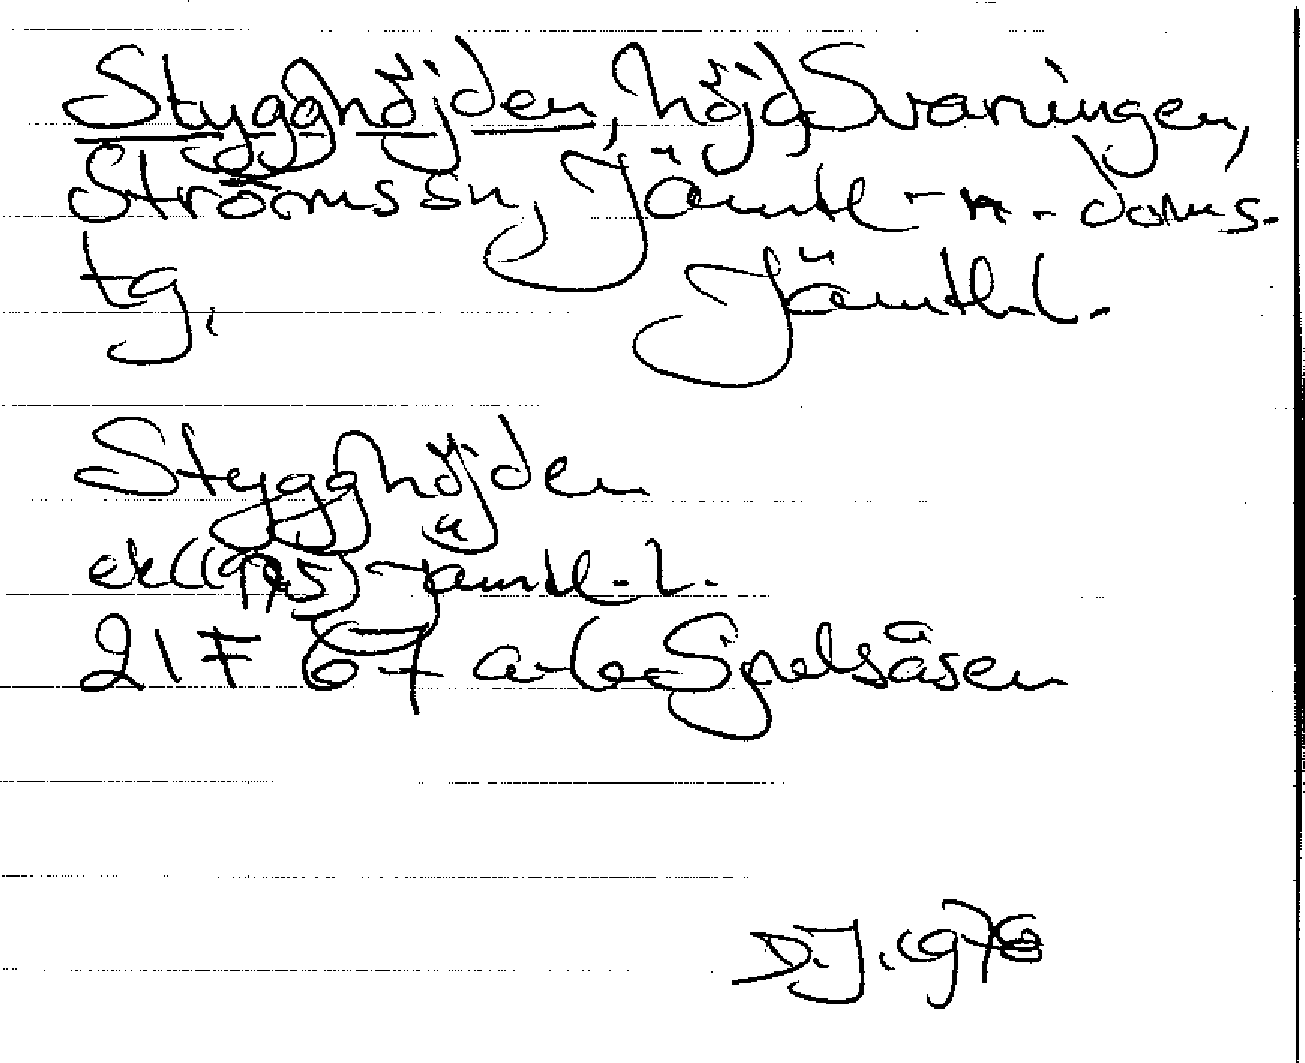 Stygghöjden, höjd Svaningen,
Ströms sn, Jämtl-n. doms.
tg. Jämtl.l.
Stygghöjden
ek (1975) Jämtl.l.
21 F 6-7 a-b Spelsåsen
D.J. 1976